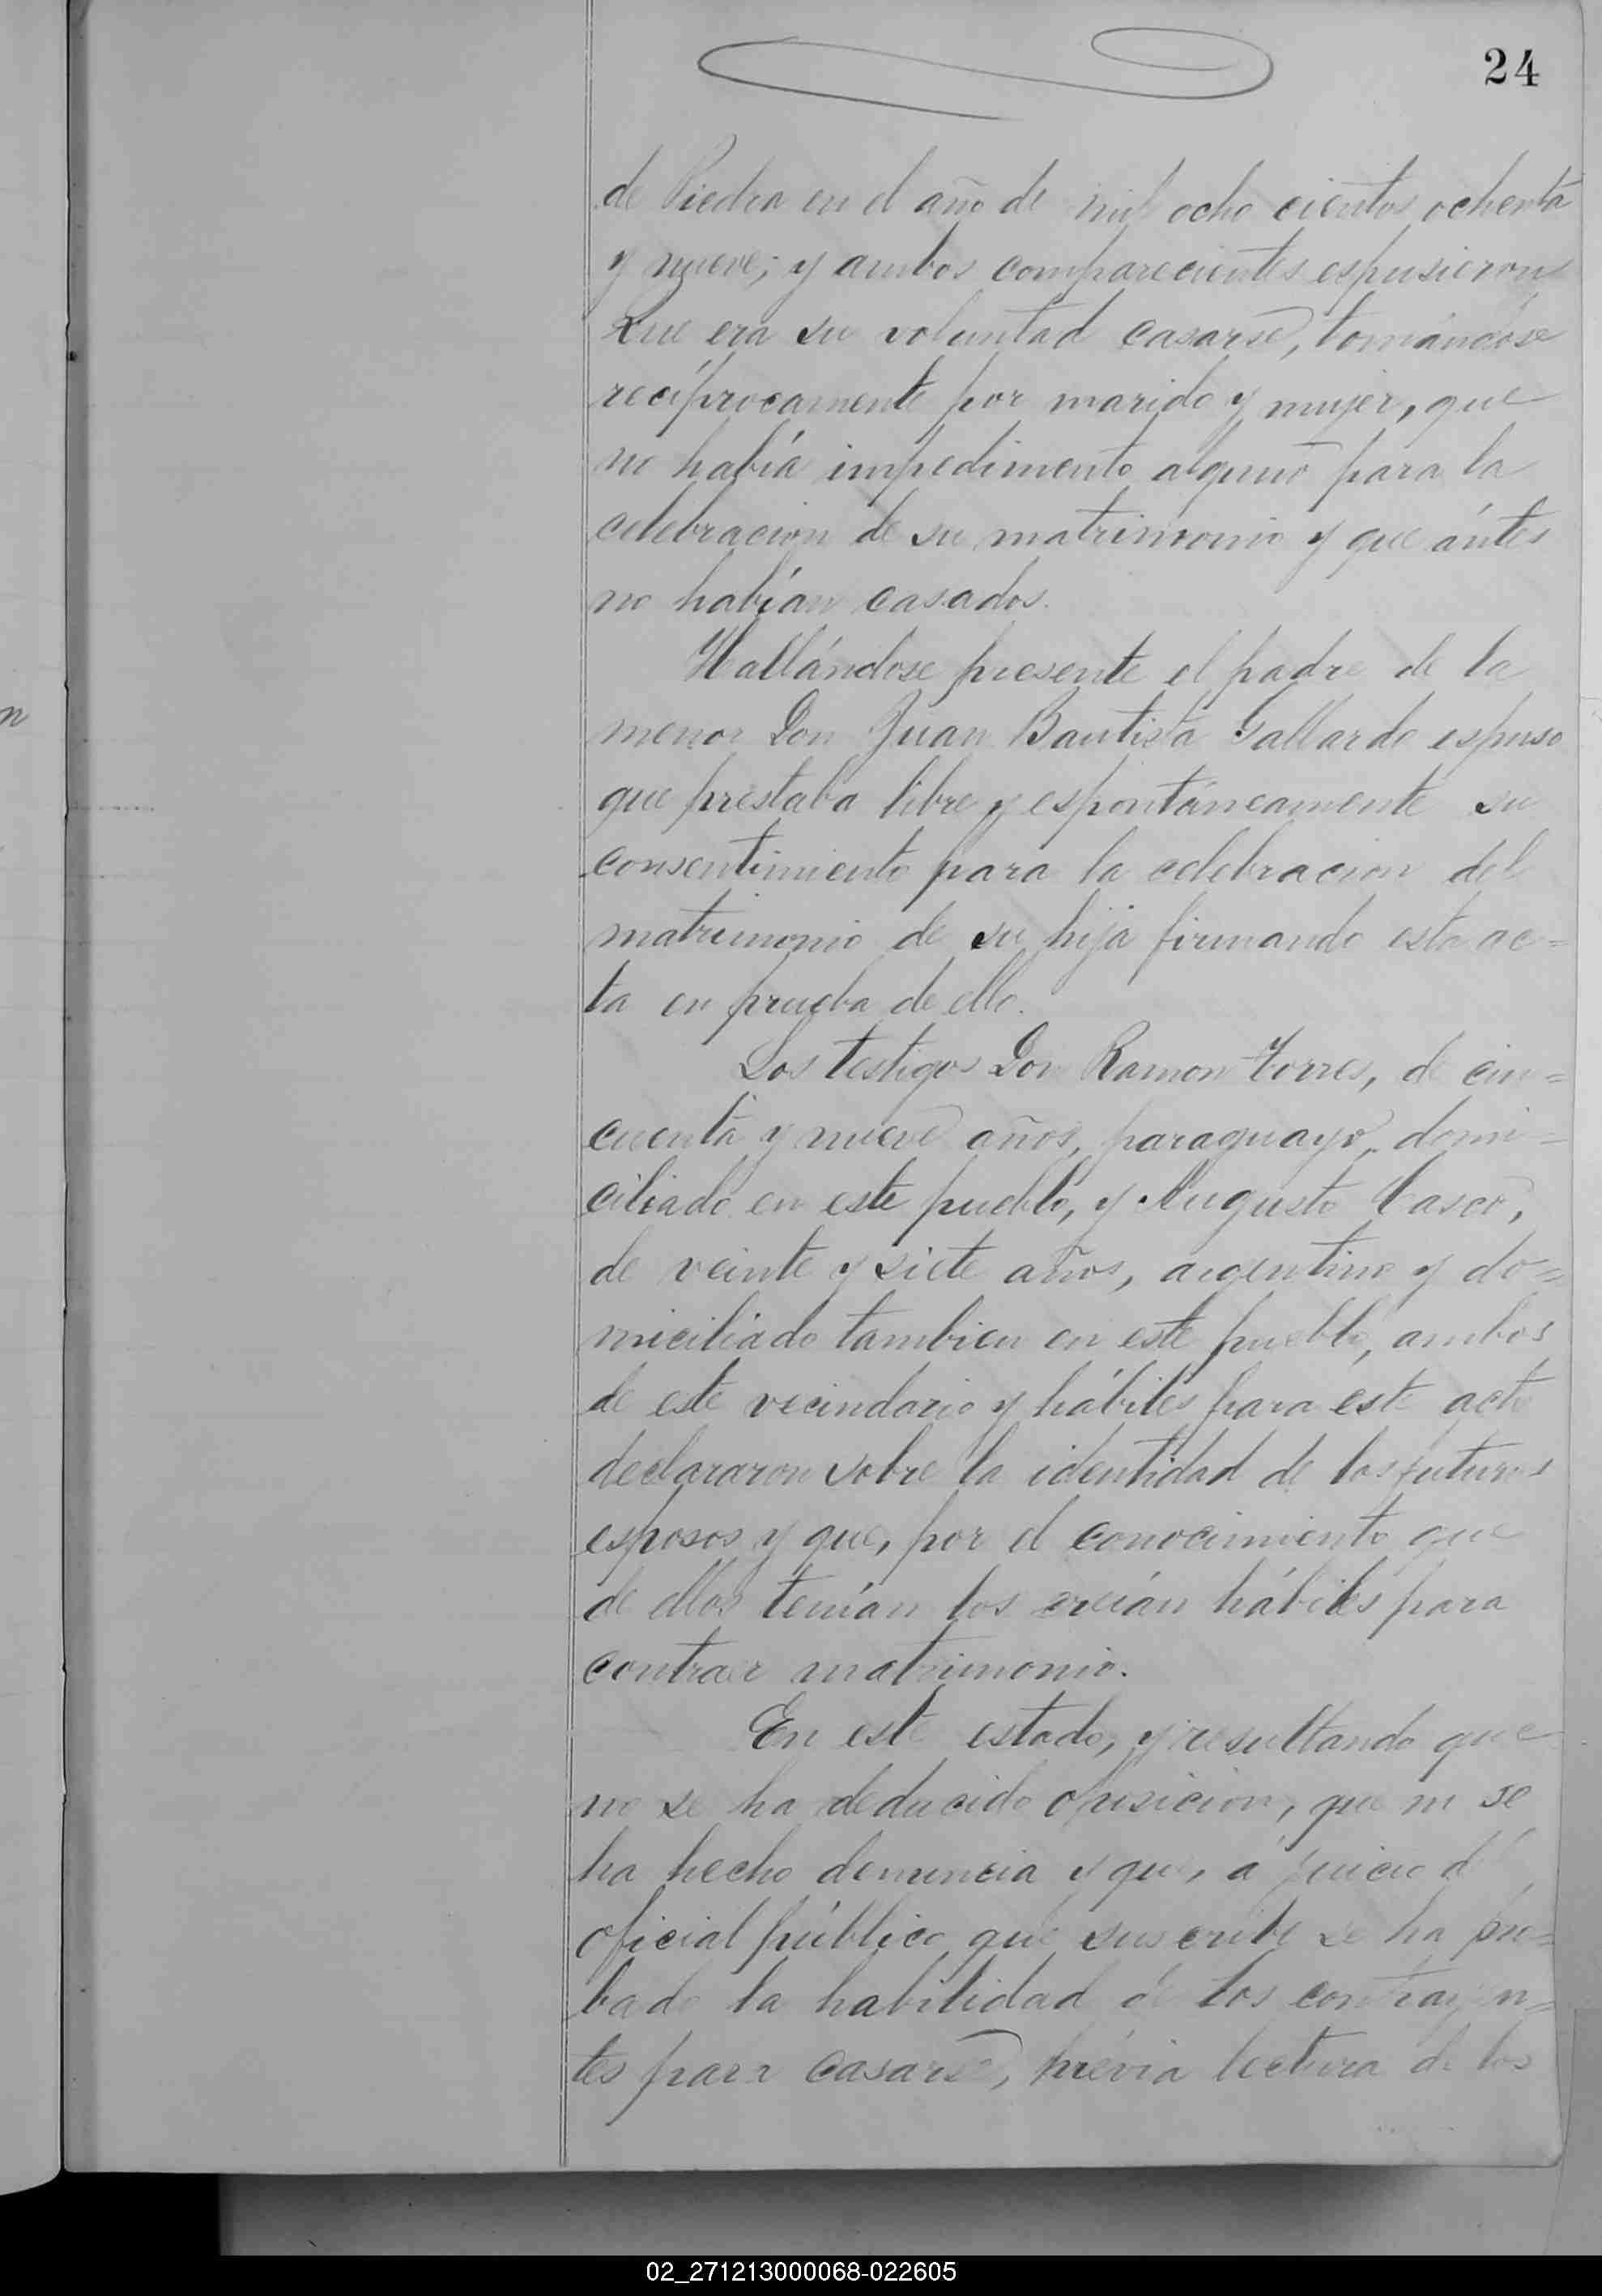 24
de Piedra en el año de mil ocho cientos ochenta
y nueve; y ambos comparecientes espusieron
Que era su voluntad casarse, tomándose
recíprocamente por marido y mujer, que
no había impedimento alguno para la
celebracion de su matrimonio y que ántes
no habían casados.
Hallándose presente el padre de la
menor Don Juan Bautista Gallardo espuso
que prestaba libre y espontáneamente su
consentimiento para la celebracion del
matrimonio de su hija firmando esta ac=
ta en prueba de ello.
Los testigos Don Ramon Torres, de cin=
cuenta y nueve años, paraguayo, domi=
ciliado en este pueblo, y Augusto Casco,
de veinte y siete años, argentino y do=
miciliado tambien en este pueblo, ambos
de este vecindario y hábiles para este acto
declararon sobre la identidad de los futuros
esposos y que, por el conocimiento que
de ellos tenían los creían hábiles para
contraer matrimonio.
En este estado, y resultando que
no se ha deducido oposicion, que ni se
ha hecho denuncia y que, á juicio del
oficial público que suscribe se ha pro=
bado la habilidad de los contrayen=
tes para casarse, prévia lectura de los
n
02_271213000068-022605